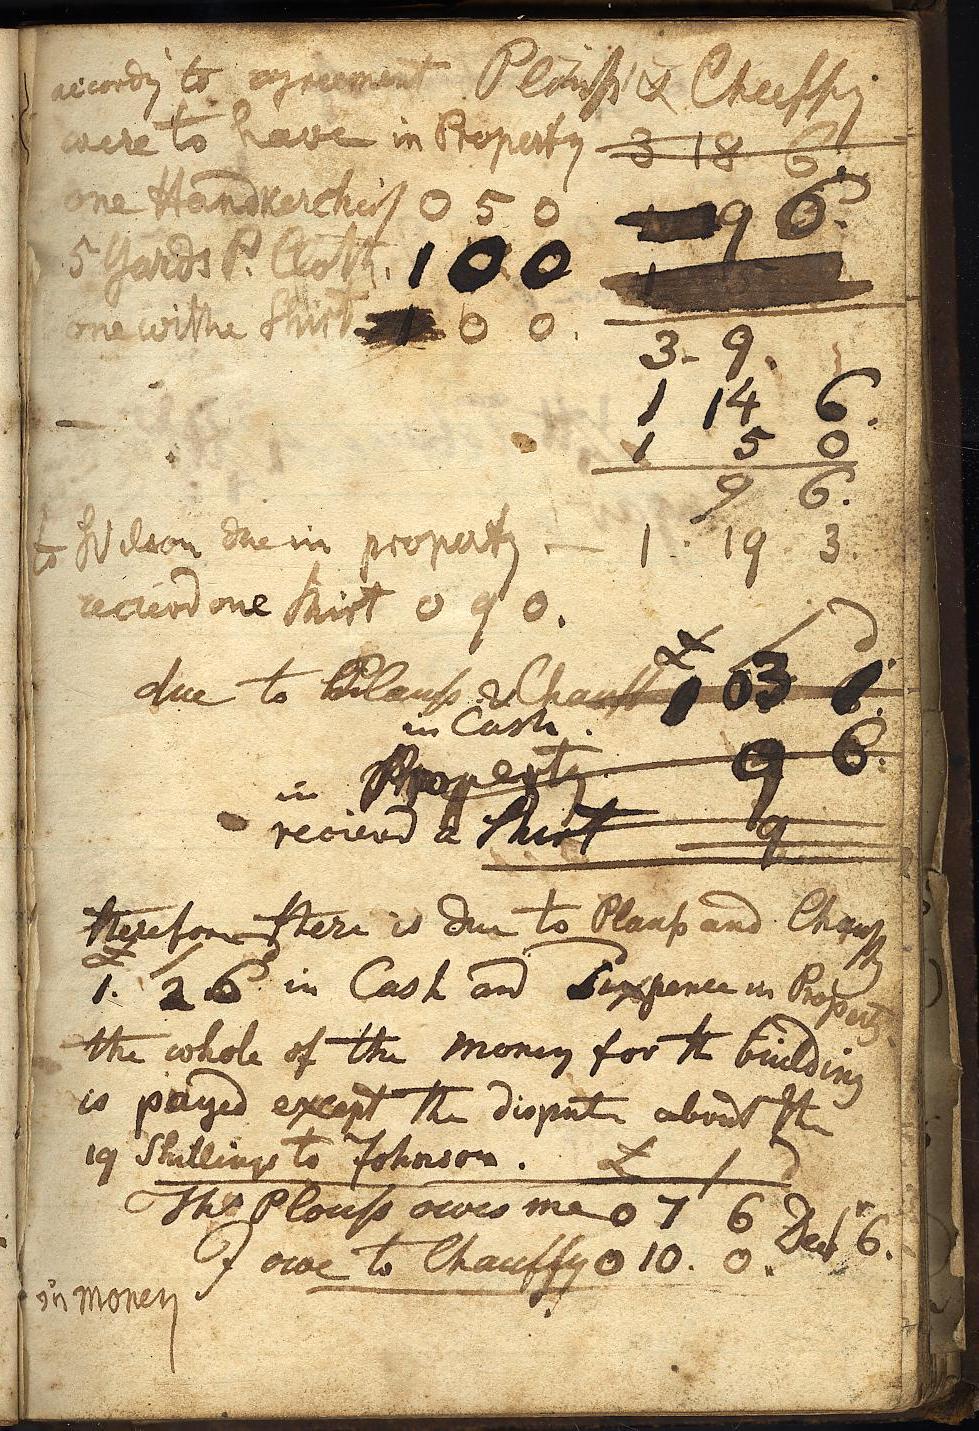 accordg to agreement Plauss & Chauffy
were to have in Property 3 18 6.
one Handkerchief 0 5 0 9 6.
5 Yards P. Cloth. 1 0 0
one withe Shirt 1 0 0.
3 - 9.
1 14 6.
1 5 0
9 6.
to Wilson due in property — 1. 19. 3.
recievd one Shirt 0 9 0.
£ / d
due to Plauss & Chauff 1 03 6.
in Cash.
in Property 9 6.
recievd a Shirt 9
therefore there is due to Plauss and Chauffy
£ /
1. 2 6 in Cash and Sixpence in Property
the whole of the money for th building
is payed except the dispute about the
19 Shillings to Johnson. £ / d
Ths Plouss owes me 0 7 6 Decr 6.
I owe to Chauffy 0 10. 0.
in money